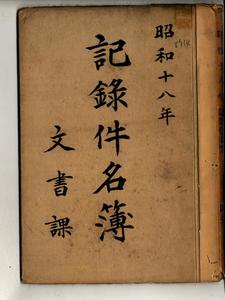 昭和十八年
記錄件名簿
文書課